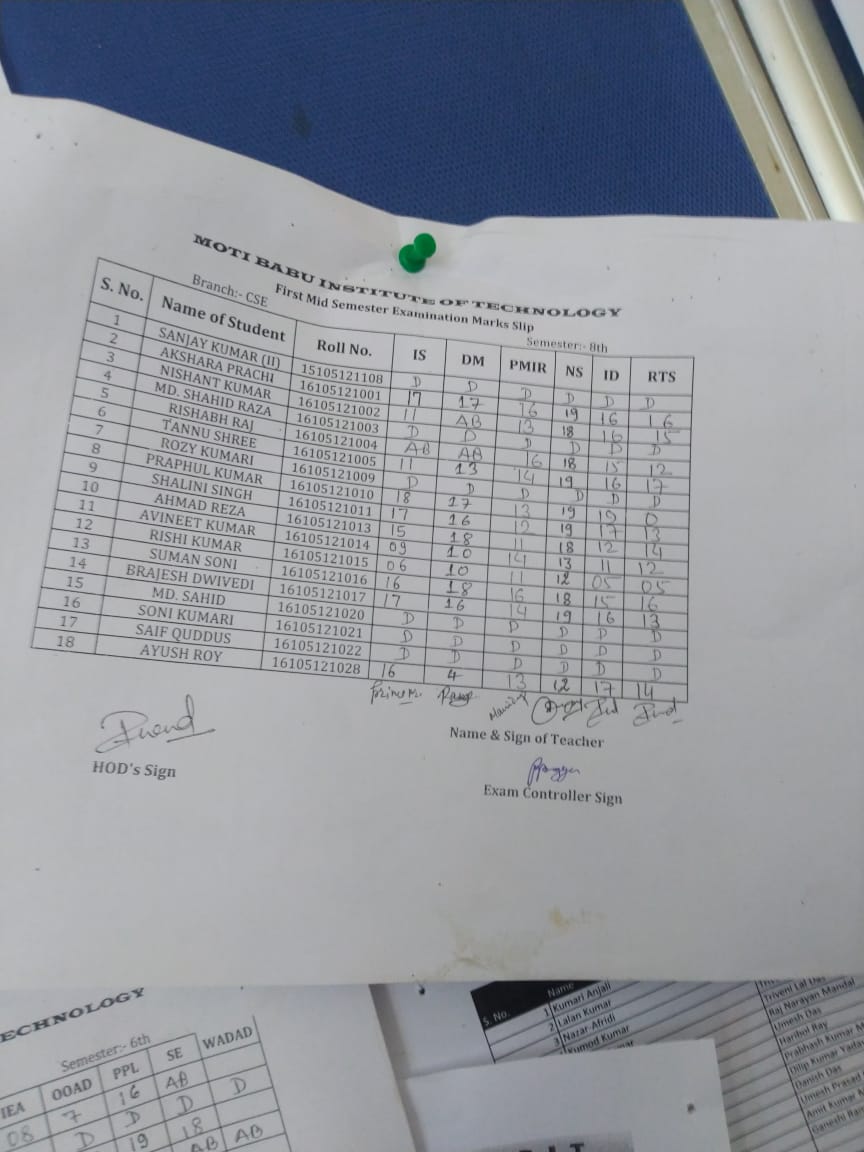 MOTI BABU INSTITUTE OF TECHNOLOGY
First Mid Semester Examination Marks Slip
Branch:- CSE Semester:- 8th
S. No. Name of Student Roll No. IS DM PMIR NS ID RTS
1 SANJAY KUMAR (II) 15105121108 D D D D D D
2 AKSHARA PRACHI 16105121001 17 17 16 19 16 16
3 NISHANT KUMAR 16105121002 11 AB 13 18 16 15
4 MD. SHAHID RAZA 16105121003 D D D D D D
5 RISHABH RAJ 16105121004 AB AB 16 18 15 12
6 TANNU SHREE 16105121005 11 13 14 19 16 17
7 ROZY KUMARI 16105121009 D D D D D D
8 PRAPHUL KUMAR 16105121010 18 17 13 19 19 0
9 SHALINI SINGH 16105121011 17 16 12 19 17 13
10 AHMAD REZA 16105121013 15 18 11 18 12 14
11 AVINEET KUMAR 16105121014 09 10 14 13 11 12
12 RISHI KUMAR 16105121015 06 10 11 12 05 05
13 SUMAN SONI 16105121016 16 18 16 18 15 16
14 BRAJESH DWIVEDI 16105121017 17 16 14 19 16 13
15 MD. SAHID 16105121020 D D D D D D
16 SONI KUMARI 16105121021 D D D D D D
17 SAIF QUDDUS 16105121022 D D D D D D
18 AYUSH ROY 16105121028 16 4 13 12 17 14
Name & Sign of Teacher
HOD's Sign
Exam Controller Sign
ECHNOLOGY
Semester:- 6th
IEA OOAD PPL SE WADAD
08 7 16 AB D
D D D
19 18
AB AB
S. No. Name
1 Kumari Anjali
2 Lalan Kumar
3 Nazar Afridi
Kumod Kumar
Triveni Lal Das
Raj Narayan Mandal
Umesh Das
Harihol Ray
Prabhash Kumar
Dilip Kumar Yadav
Danish Das
Umesh Prasad
Amit Kumar
Ganeshi